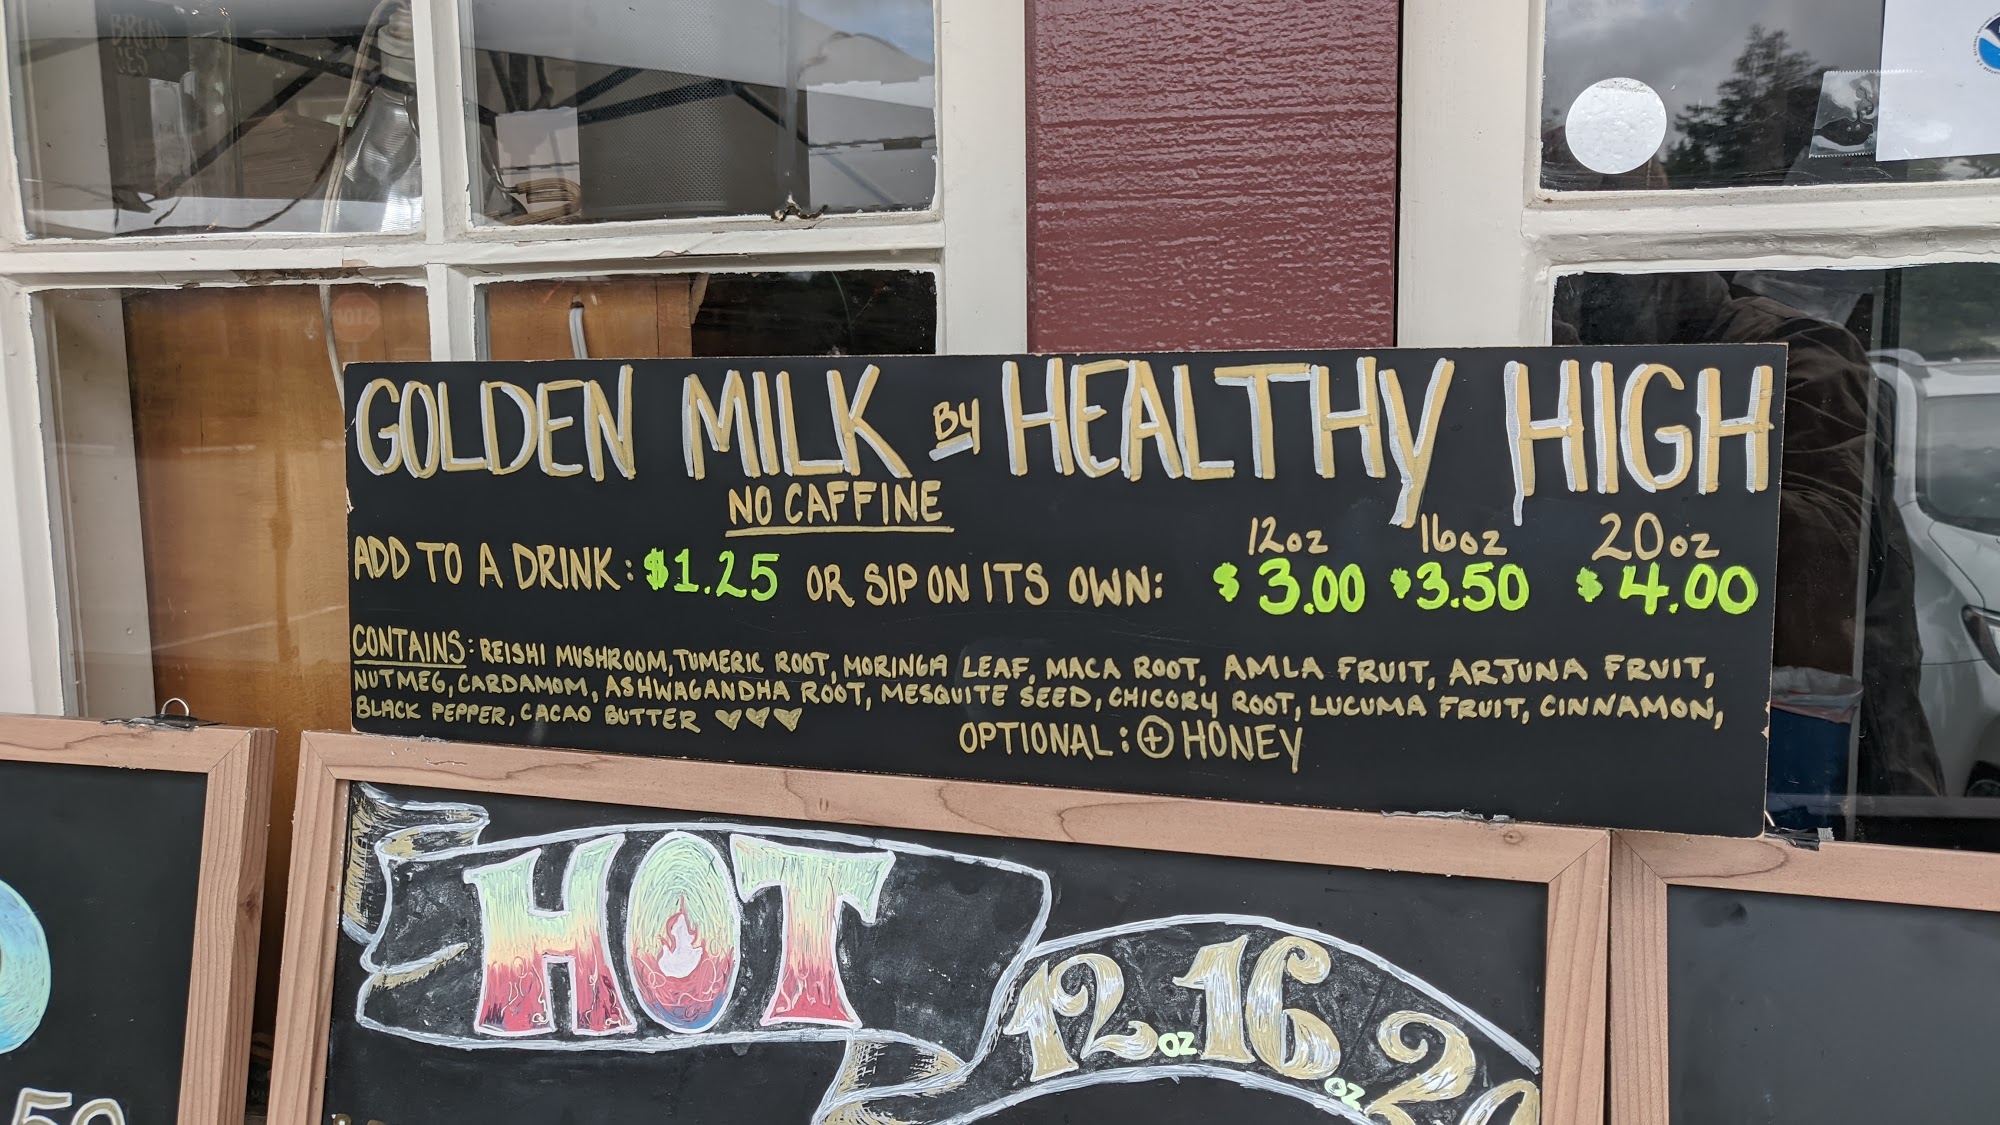 BREAD
GOLDEN MILK BY HEALTHY HIGH
NO CAFFINE
12oz 16oz 20oz
ADD TO A DRINK: $1.25 OR SIP ON ITS OWN: $3.00 $3.50 $4.00
CONTAINS: REISHI MUSHROOM, TUMERIC ROOT, MORINGA LEAF, MACA ROOT, AMLA FRUIT, ARJUNA FRUIT,
NUTMEG, CARDAMOM, ASHWAGANDHA ROOT, MESQUITE SEED, CHICORY ROOT, LUCUMA FRUIT, CINNAMON,
BLACK PEPPER, CACAO BUTTER
OPTIONAL: + HONEY
HOT
12 oz 16 oz
50